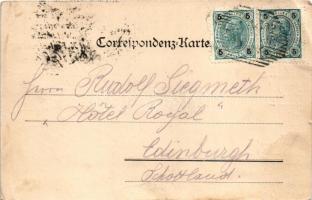 5 5 5 5
Correspondenz-Karte
Herrn Rudolf Siegmeth
"Hôtel Royal"
Edinburgh
Schottland.